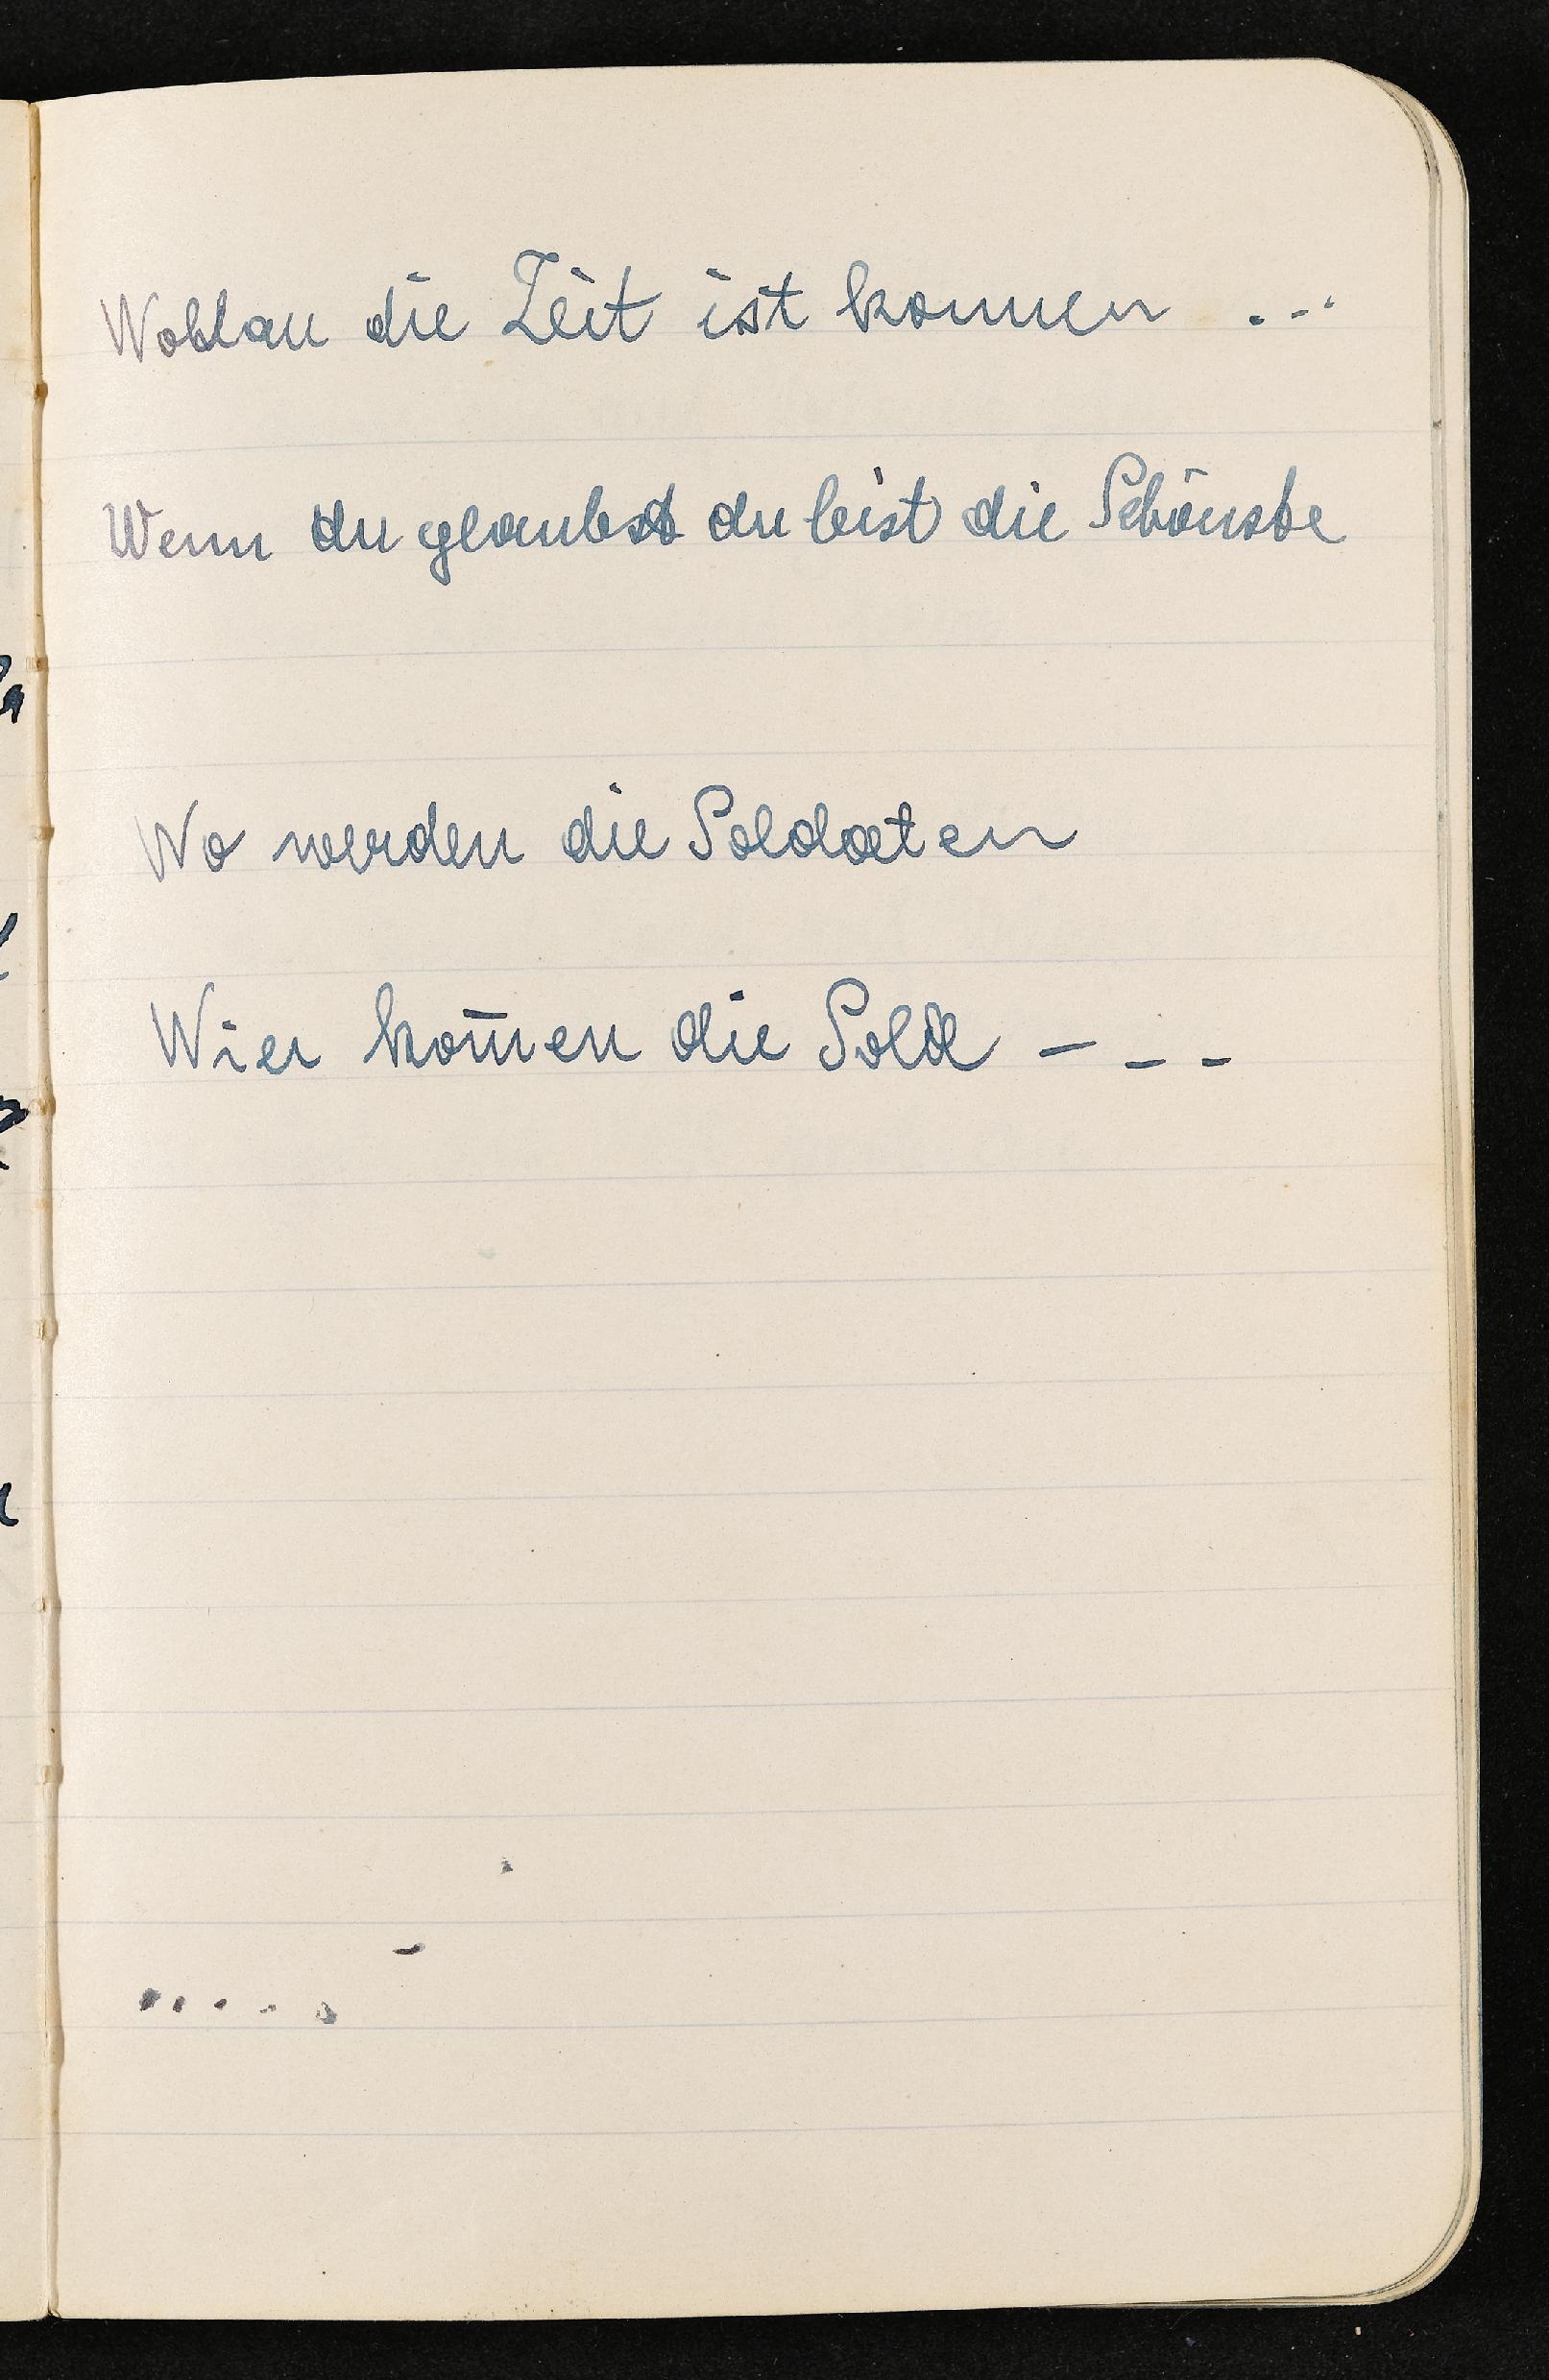 Wohlan die Zeit ist kommen ...
Wenn du glaubst du bist die Schönste
Wo werden die Soldaten
Wier kom̅en die Sold - - -